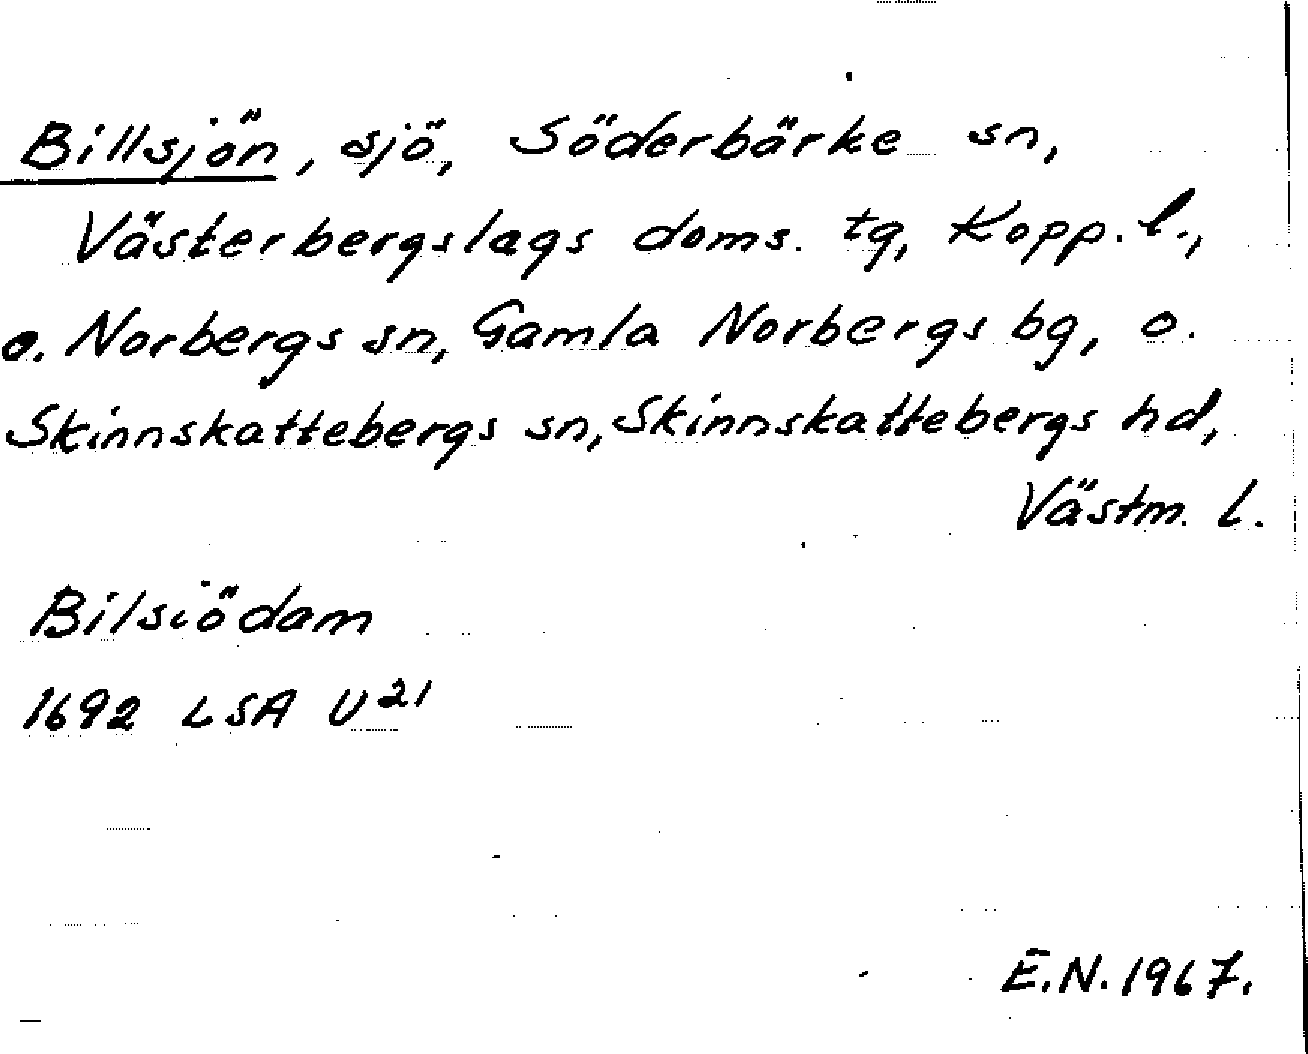 Billsjön, sjö, Söderbärke sn,
Västerbergslags doms. tg, Kopp. l.,
o. Norbergs sn, Gamla Norbergs bg, o.
Skinnskattebergs sn, Skinnskattebergs hd,
Västm. l.
Bilsiödam
1692 LSA U21
E.N. 1967.